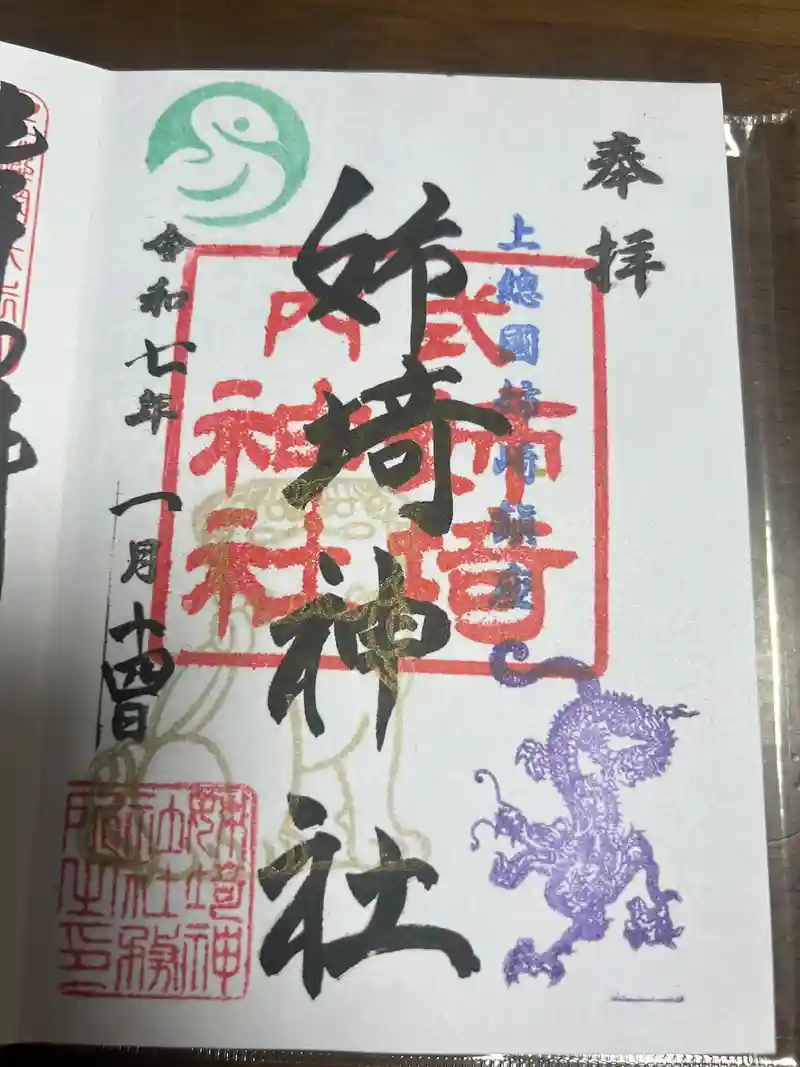 奉拝
上總國姉埼鎮座
姉埼神社
式内
姉埼
神社
令和七年
一月十四日
姉埼神
社社務
所之印